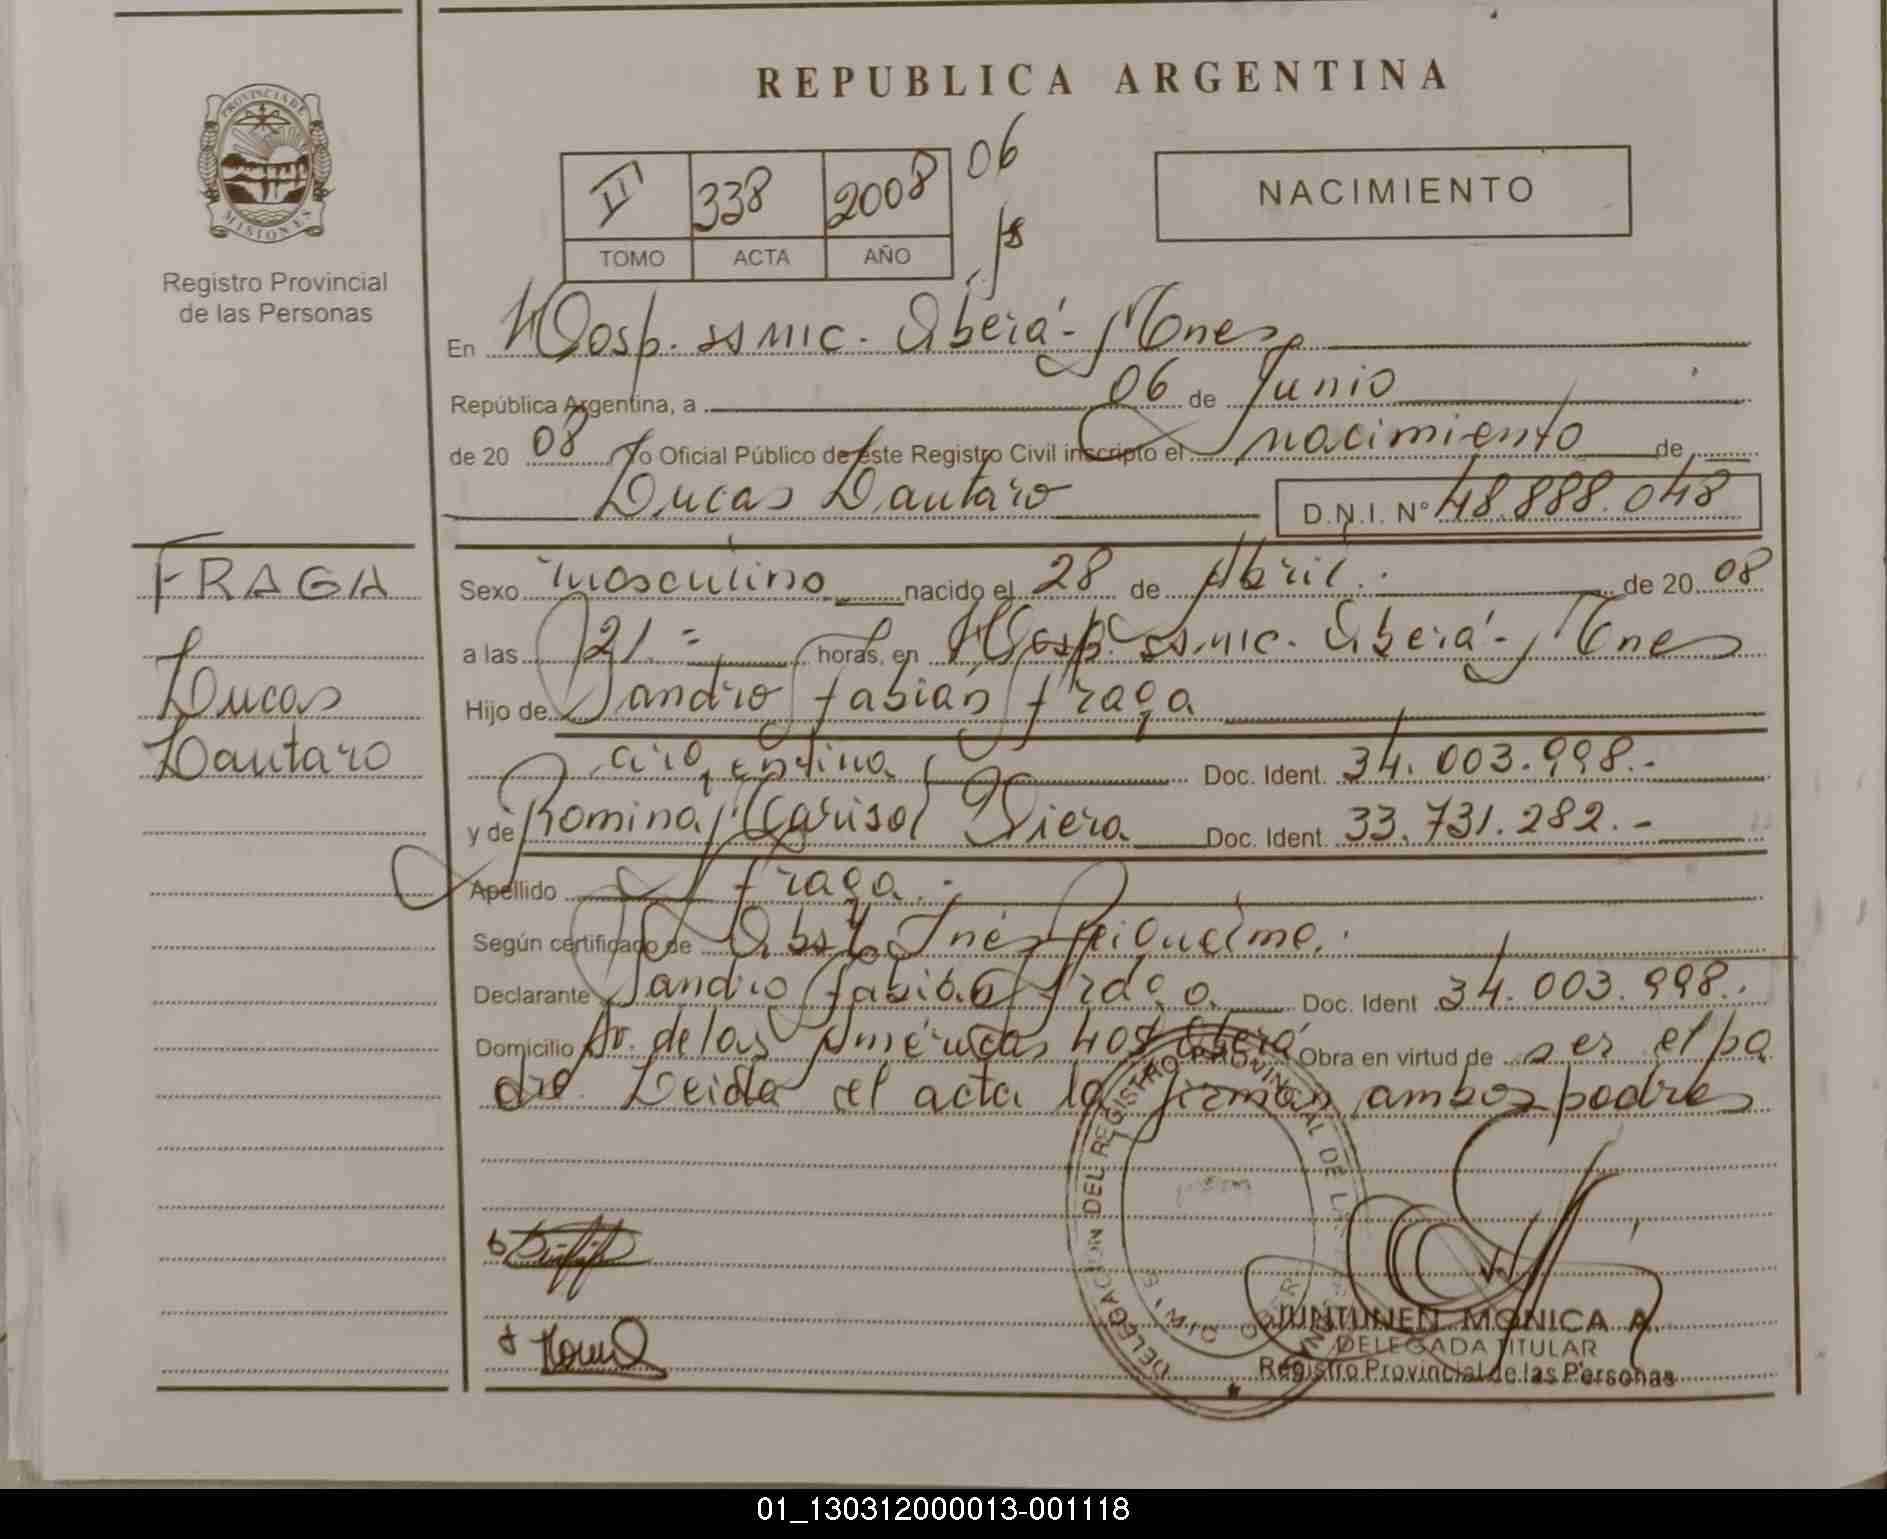 REPUBLICA ARGENTINA
PROVINCIA DE MISIONES
Registro Provincial
de las Personas
II 338 2008 06
TOMO ACTA AÑO
NACIMIENTO
En Hosp. SSMIC. Oberá - Mnes
República Argentina, a 06 de Junio
de 20 08 Yo Oficial Público de este Registro Civil inscripto el nacimiento de
Lucas Lautaro D.N.I. Nº 48.888.048
FRAGA
Lucas
Lautaro
Sexo masculino nacido el 28 de Abril. de 20 08
a las 21 = horas, en Hosp. SSMIC. Oberá - Mnes
Hijo de Sandro Fabián Fraga
argentina Doc. Ident. 34.003.998.-
y de Romina Marisol Viera Doc. Ident. 33.731.282.-
Apellido Fraga.-
Según certificado de Obst. Inés
Declarante Sandro Fabián Fraga Doc. Ident 34.003.998.
Domicilio Av. de las Américas 407 Oberá Obra en virtud de ser el pa
dre. Leida el acta la firman ambos padres
DELEGACION DEL REGISTRO PROVINCIAL DE LAS PERSONAS
JUNTUNEN MONICA A.
DELEGADA TITULAR
Registro Provincial de las Personas
01_130312000013-001118